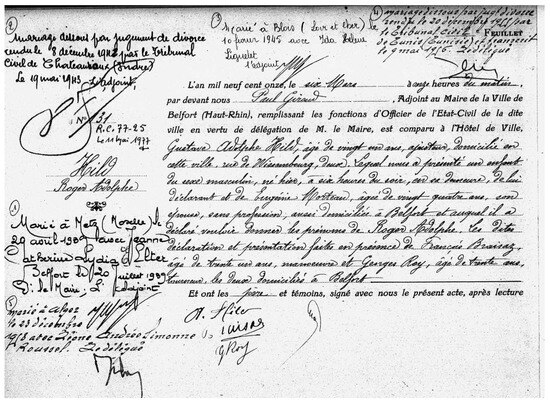 ② Mariage dissout par jugement de divorce
rendu le 8 décembre 1942 par le Tribunal
Civil de Chateauroux (Indre)
Le 19 mai 1943 L'adjoint,
③ Marié à Blois (Loir et Cher) le
10 février 1945 avec Ida
L'adjoint
④ mariage dissous par jugt divorce
rendu le 20 décembre 1955 par
le Tribunal Civil
de Tunis (Tunisie)
9 mai 1956. Le délégué
FEUILLET
N° 131
R.C. 77-25
Le 11 mai 1977
Hild
Roger Adolphe
L'an mil neuf cent onze, le six Mars à onze heures du matin
par devant nous Paul Girard, Adjoint au Maire de la Ville de
Belfort (Haut-Rhin), remplissant les fonctions d'Officier de l'Etat-Civil de la dite
ville en vertu de délégation de M. le Maire, est comparu à l'Hôtel de Ville,
Gustave Adolphe Hild, âgé de vingt six ans, ajusteur, domicilié en
cette ville, rue de Wissembourg, deux. Lequel nous a présenté un enfant
du sexe masculin, né hier, à six heures du soir, en sa demeure, de lui
déclarant et de Eugénie Moreau, âgée de vingt quatre ans, son
épouse, sans profession, aussi domiciliée à Belfort et auquel il a
déclaré vouloir donner les prénoms de Roger Adolphe. Les dites
déclaration et présentation faites en présence de François
âgé de trente un ans, manoeuvre et Georges Roy, âgé de trente ans,
tourneur, les deux domiciliés à Belfort.
Et ont les père et témoins, signé avec nous le présent acte, après lecture
① Marié à Metz (Moselle) le
20 avril avec Jeanne
Catherine Lydia
Belfort le 20 juillet 1939
P. le Maire : L'adjoint
⑤ marié à
le 23 décembre
1958 avec Andrée Simonne
Roussel. Le délégué
A. Hild
G Roy